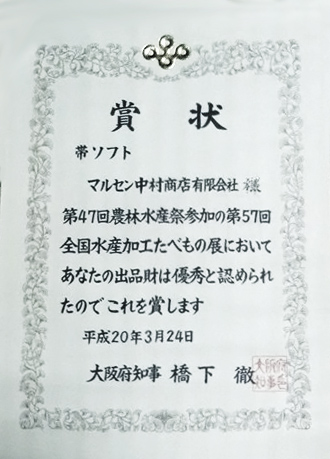 賞 状
帯ソフト
マルセン中村商店有限会社 様
第47回農林水産祭参加の第57回
全国水産加工たべもの展において
あなたの出品財は優秀と認められ
たのでこれを賞します
平成20年3月24日
大阪府知事 橋下 徹